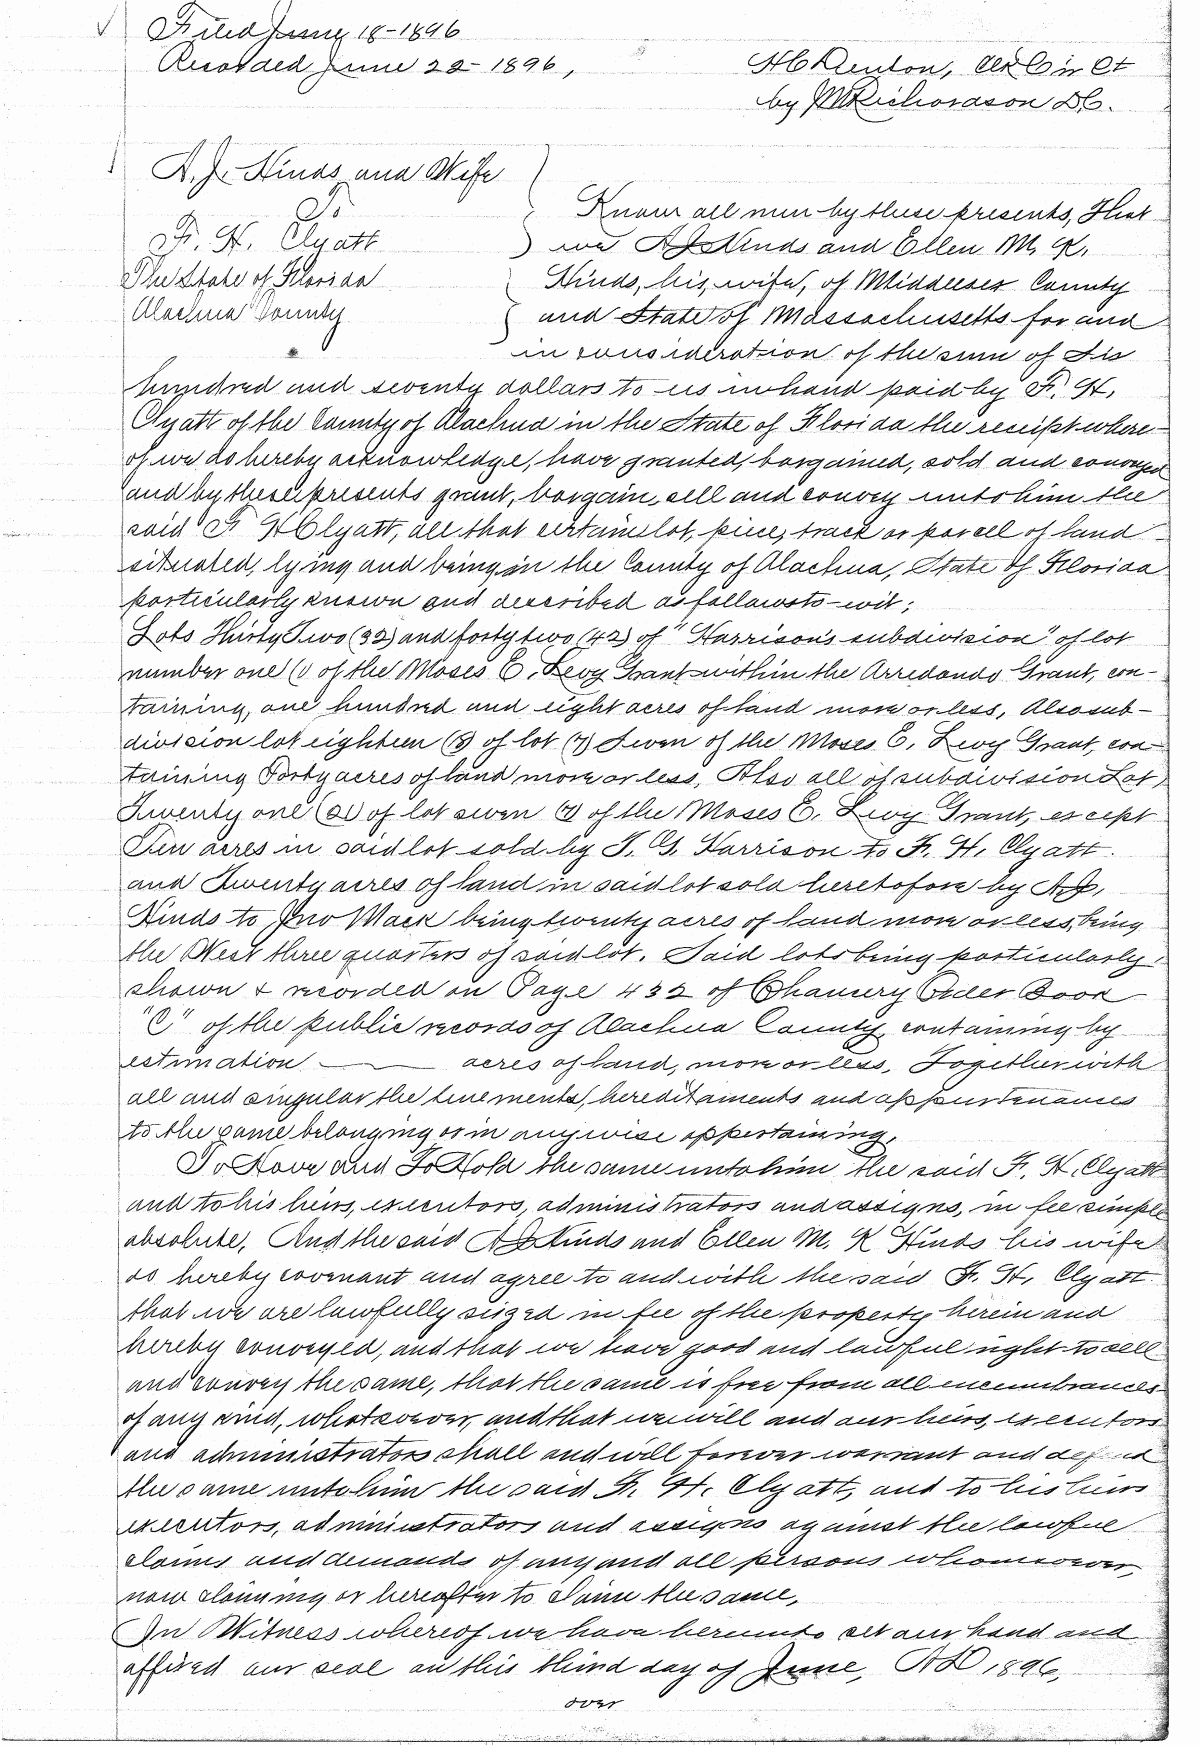 Filed June 18-1896
Recorded June 22-1896,
H C Denton, Clk Cir Ct
by Richardson D.C.
A. J. Hinds and Wife
To
F. H. Clyatt
The State of Florida
Alachua County
Know all men by these presents, That
we A J Hinds and Ellen M. K.
Hinds, his, wife, of Middlesex County
and State of Massachusetts for and
in consideration of the sum of Six
hundred and seventy dollars to us in hand paid by F. H.
Clyatt of the County of Alachua in the State of Florida the receipt where-
of we do hereby acknowledge, have granted, bargained, sold and conveyed
and by these presents grant, bargain, sell and convey unto him the
said F H Clyatt, all that certain lot, piece, track or parcell of land
situated, lying and being in the County of Alachua, State of Florida
particularly known and described as follows to-wit;
Lots Thirty Two (32) and forty two (42) of "Harrison's subdivision" of lot
number one (1 of the Moses E. Levy Grant within the Arredondo Grant, con-
taining, one hundred and eight acres of land more or less, Also sub-
division lot eighteen of lot (7) Seven of the Moses E. Levy Grant, con-
taining Forty acres of land more or less. Also all of subdivision Lot,
Twenty one (21) of lot seven (7) of the Moses E. Levy Grant, except
Ten acres in said lot sold by T. G. Harrison to F. H. Clyatt.
and Twenty acres of land in said lot sold heretofore by A J,
Hinds to Jno Mack being twenty acres of land more or less, being
the West three quarters of said lot. Said lots being particularly
shown & recorded on Page 432 of Chancery Order Book
"C" of the public records of Alachua County, containing by
estimation ——— acres of land, more or less, Together with
all and singular the tenements, hereditaments and appurtenances
to the same belonging or in anywise appertaining,
To Have and To Hold the same unto him the said F. H. Clyatt
and to his heirs, executors, administrators and assigns, in fee simple
absolute, And the said A J Hinds and Ellen M. K Hinds his wife
do hereby covenant and agree to and with the said F. H. Clyatt
that we are lawfully seized in fee of the property herein and
hereby conveyed, and that we have good and lawful right to sell
and convey the same, that the same is free from all encumbrances
of any kind, whatsoever, and that we will and our heirs, executors
and administrators shall and will forever warrant and defend
the same unto him the said F. H. Clyatt, and to his heirs
executors, administrators and assigns against the lawful
claims and demands of any and all persons whomsoever,
now claiming or hereafter to claim the same,
In Witness whereof we have hereunto set our hand and
affixed our seal on this third day of June, A D 1896,
over